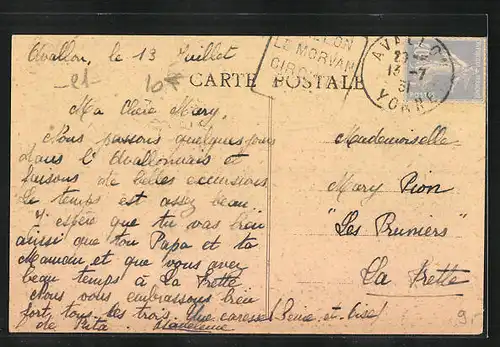 Avallon, le 13 Juillet
-21-
10*
CARTE POSTALE
LE MORVAN
AVALLON
13 -7
31
YONNE
Ma Chère Mary,
Nous passons quelques jours
dans l'Avallonnais et
faisons de belles excursions
Le temps est assez beau
J'espère que tu vas bien
ainsi que ton Papa et ta
Maman et que vous avez
beau temps à La Frette
Nous vous embrassons bien
fort tous les trois. Une caresse
de Rita. Madeleine
Mademoiselle
Mary Pion
"Les Pruniers"
La Frette
(Seine-et-Oise)
9.-